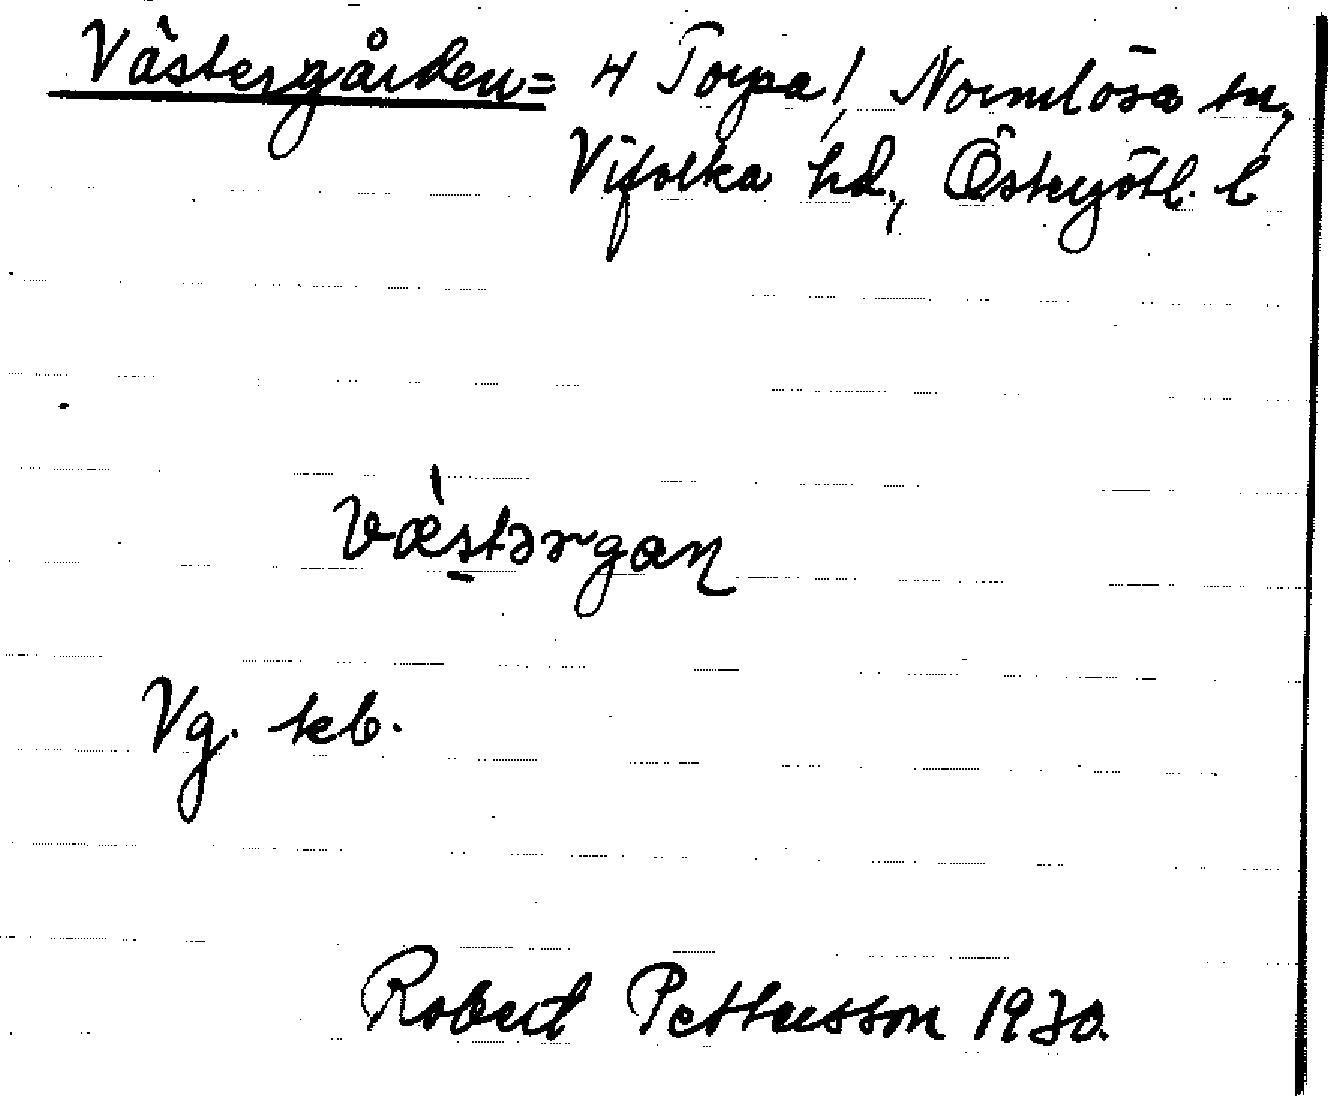 Västergården = 4 Torpa, Normlösa sn,
Vifolka hd., Östergötl. l
västərgaɳ
Vg. teb.
Robert Pettersson 1930.